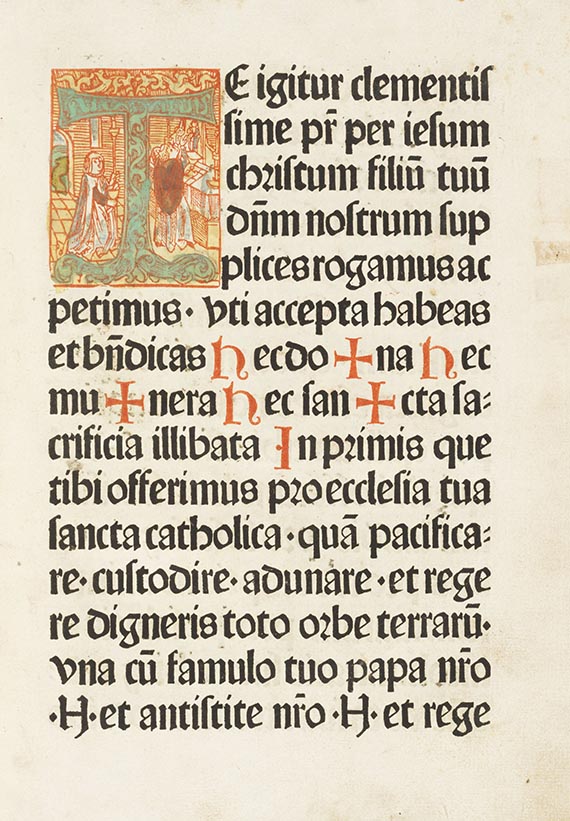 TE igitur clementiſ
ſime pr̄ per ieſum
chriſtum filiū tuū
dn̄m noſtrum ſup
plices rogamus ac
petimus· vti accepta habeas
et bn̄dicas hec do + na hec
mu + nera hec ſan + cta ſa⸗
crificia illibata In primis que
tibi offerimus pro eccleſia tua
ſancta catholica · quā pacifica⸗
re· cuſtodire· adunare · et rege
re digneris toto orbe terrarū·
vna cū famulo tuo papa nr̄o
·N· et antiſtite nr̄o ·N· et rege